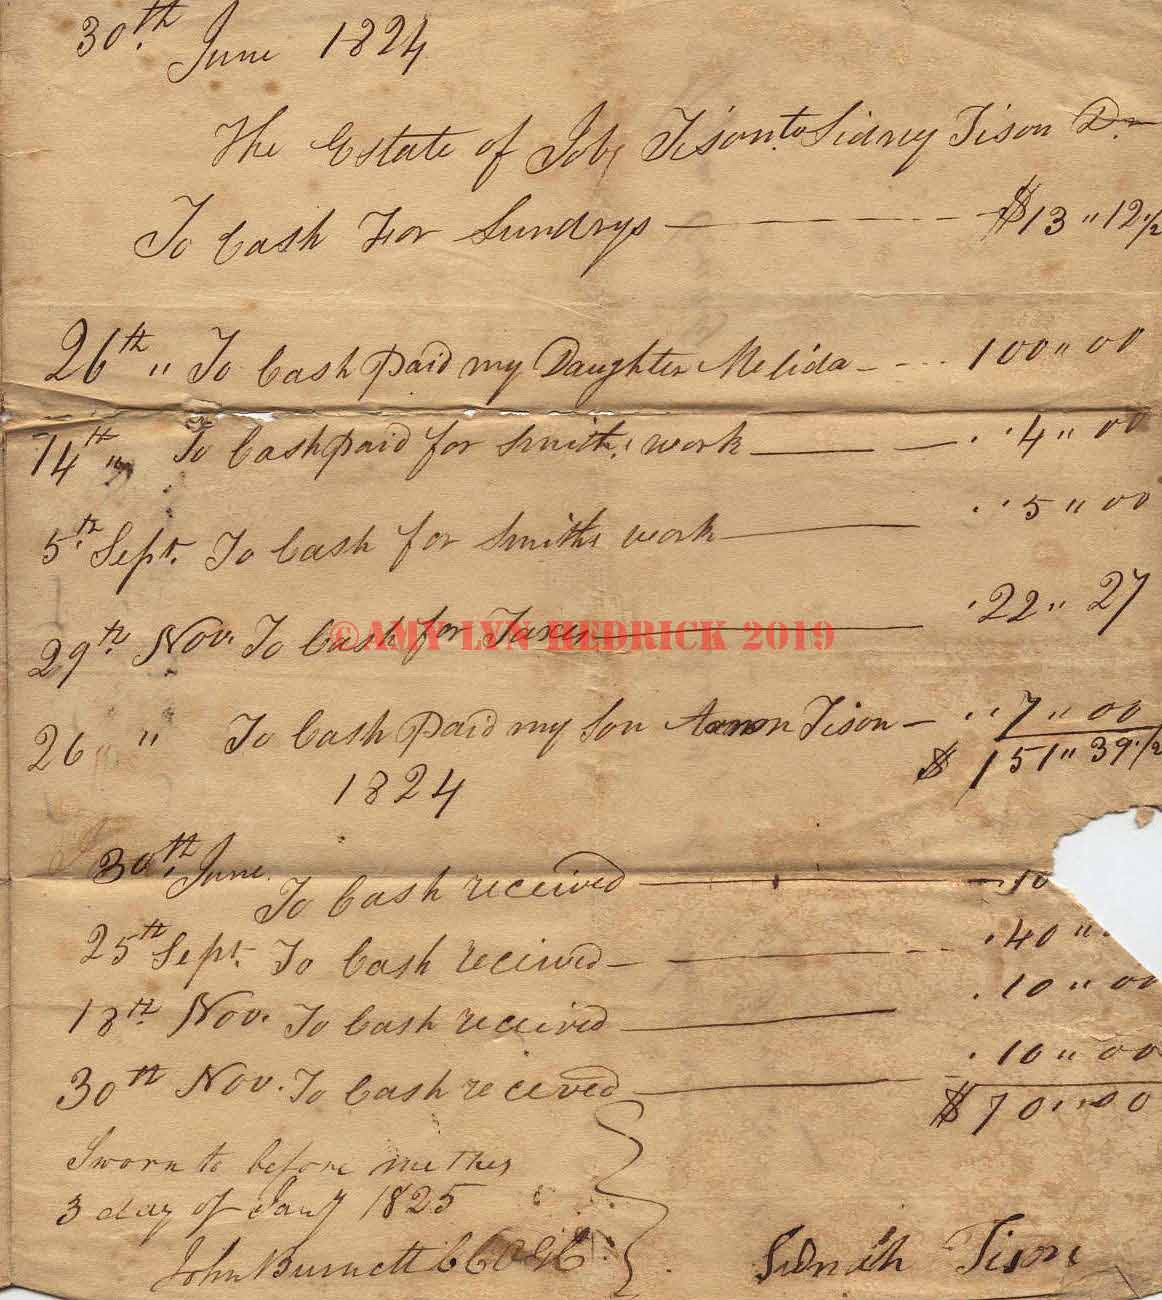 30th June 1824
The Estate of Job Tison to Sidney Tison Dr
To Cash For Sundrys $13 " 12 1/2
26th " To Cash Paid my Daughter Melida 100 " 00
14th " To Cash paid for Smiths work 4 " 00
5th Sept. To Cash for Smiths work 5 " 00
29th Nov. To Cash for Taxes 22 " 27
©AMY LYN HEDRICK 2019
26 " To Cash Paid my Son Aaron Tison 7 " 00
$ 151 " 39 1/2
1824
30th June. To Cash received 10
25th Sept. To Cash received 40 "
18th Nov. To Cash received 10 " 00
30th Nov. To Cash received 10 " 00
$ 70 " 00
Sworn to before me this
3 day of Jany 1825
John Burnett Sidnah Tison